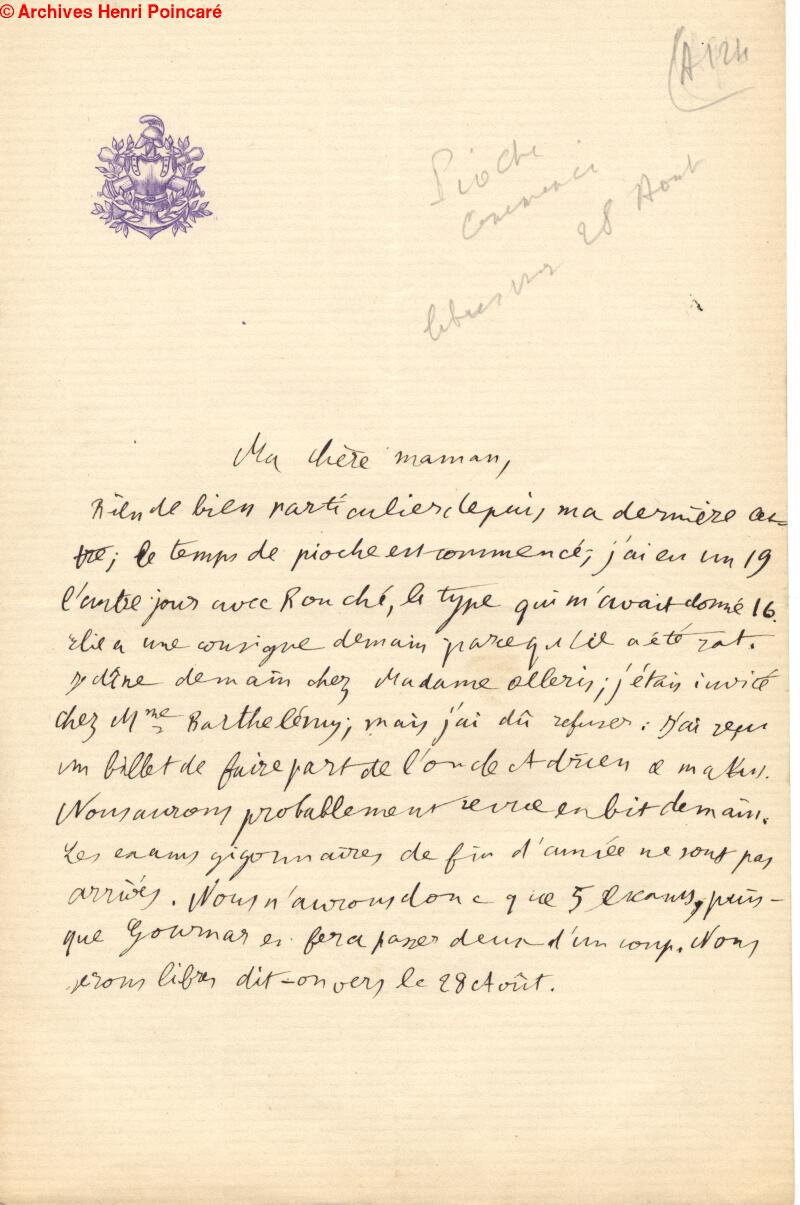 © Archives Henri Poincaré
A 124
Pioche
commencée
libres vers 28 Aout
Ma chère maman,
Rien de bien particulier depuis ma dernière let-
tre; le temps de pioche est commencé; j'ai eu un 19
l'autre jour avec Rouché, le type qui m'avait donné 16.
Elie a une consigne demain parce qu'il a été
Je dîne demain chez Madame Olleris; j'étais invité
chez Mme Barthelémy; mais j'ai dû refuser. J'ai reçu
un billet de faire part de l'oncle Adrien
Nous aurons probablement revue en bit demain.
Les exams gigonnaires de fin d'année ne sont pas
arrivés. Nous n'aurons donc que 5 exams, puis-
que Gournerie fera passer deux d'un coup. Nous
serons libres dit-on vers le 28 Août.